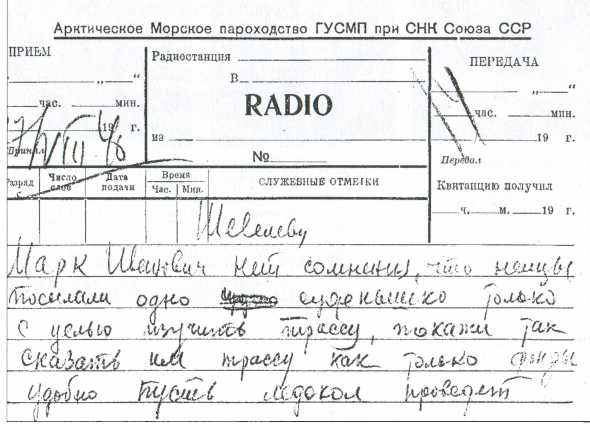 Арктическое Морское пароходство ГУСМП при СНК Союза ССР
ПРИЕМ
„ “
час. мин.
19 г.
Принял
27/VIII 40
Радиостанция
В
RADIO
из
№
ПЕРЕДАЧА
„ “
час. мин.
19 г.
Передал
Квитанцию получил
ч. м. 19 г.
Разряд
Число слов
Дата подачи
Время
Час. Мин.
СЛУЖЕБНЫЕ ОТМЕТКИ
Шевелеву
Марк Иванович нет сомнения, что немцы
посылали одно суденышко только
с целью изучить трассу, покажи так
сказать им трассу как только
удобно пусть ледокол проведет